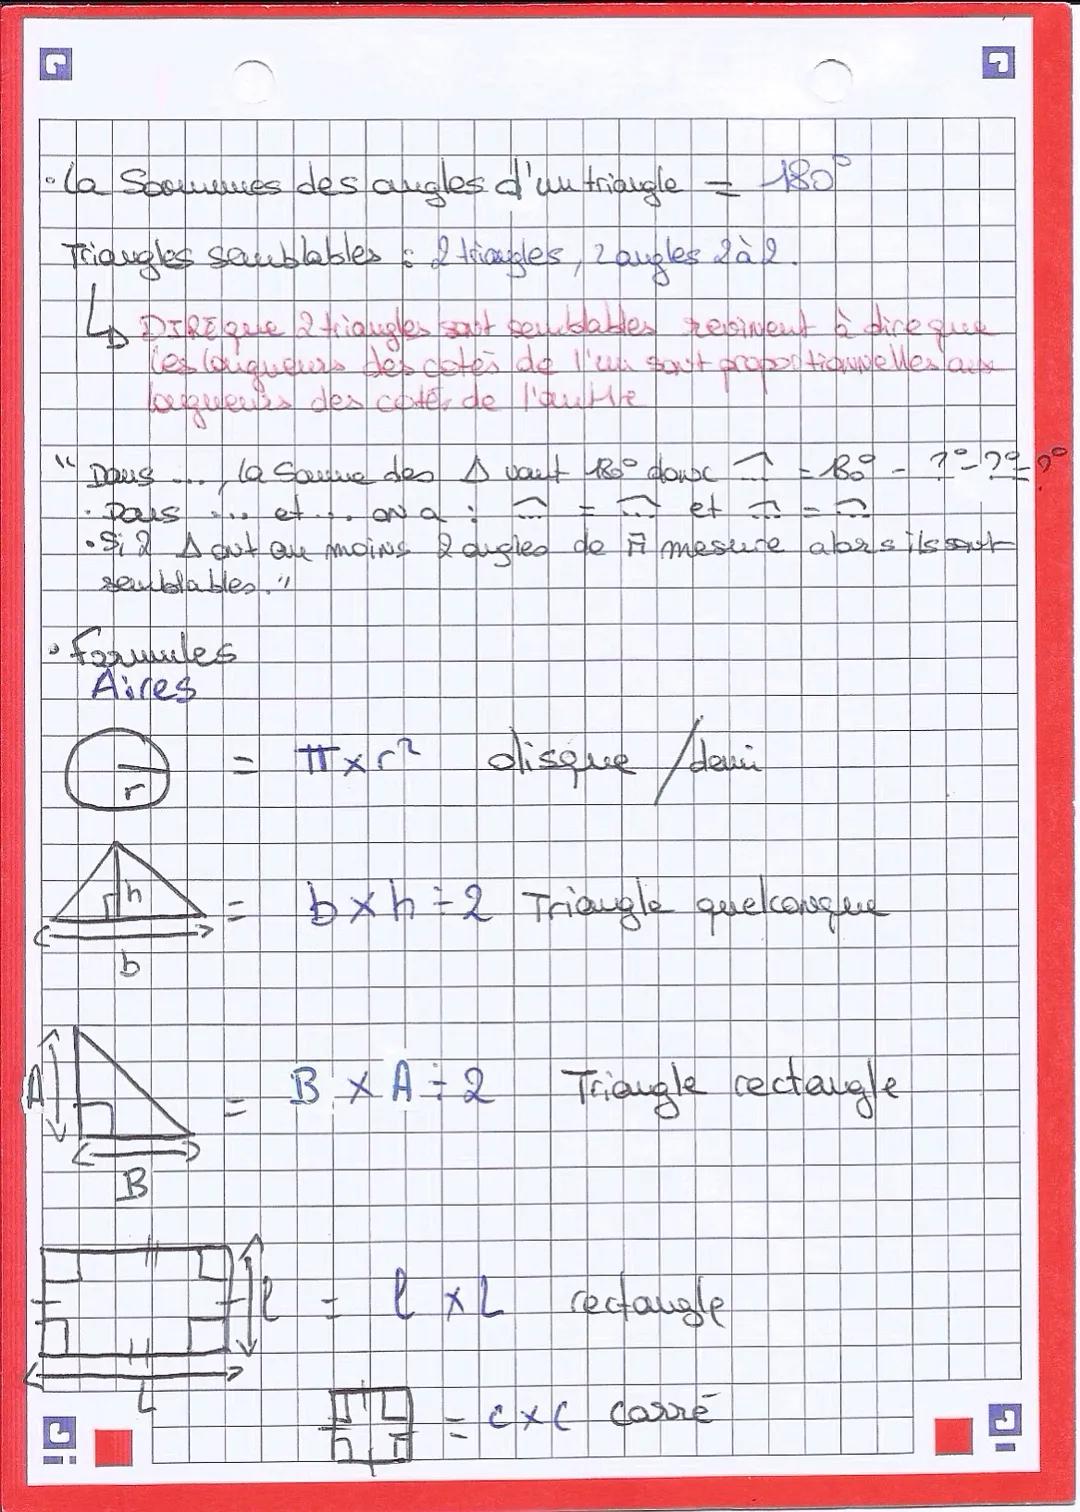 · La Sommes des angles d'un triangle = 180°
Triangles semblables : 2 triangles, 2 angles 2 à 2.
↳ DIRE que 2 triangles sont semblables revinent à dire que
les longueurs des cotés de l'un sont proportionnelles aux
longueurs des côtés de l'autre
" Dans ..., la somme des Δ vaut 180° donc = 180° - ?° - ?° - ?°
· Dans ... et ... on a : = et =
· Si 2 Δ ont au moins 2 angles de m̂ mesure alors ils sont
semblables. "
· Formules
Aires
r = π × r² disque / demi
h = b × h ÷ 2 Triangle quelconque
b
A = B × A ÷ 2 Triangle rectangle
B
l = l × L rectangle
L
= c × c carré